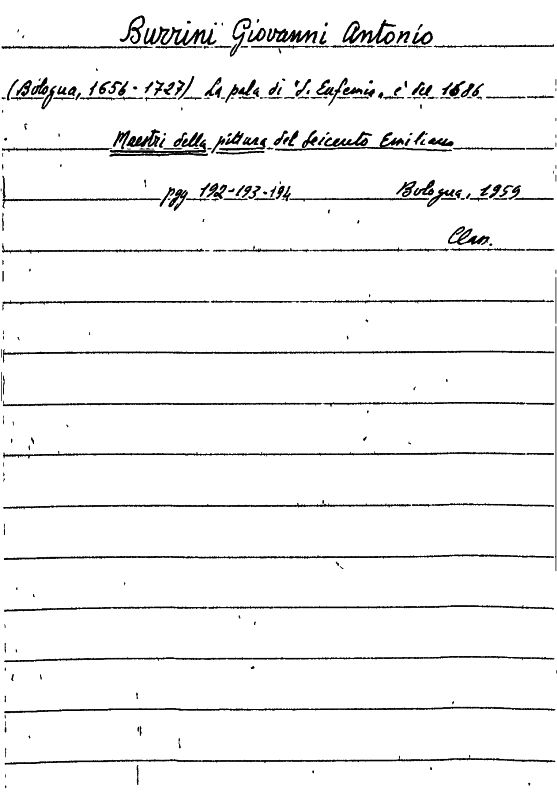 Burrini Giovanni Antonio
(Bologna, 1656 - 1727) La pala di "S. Eufemia" è del 1686
Maestri della pittura del Seicento Emiliano
pgg 192-193-194 Bologna, 1959